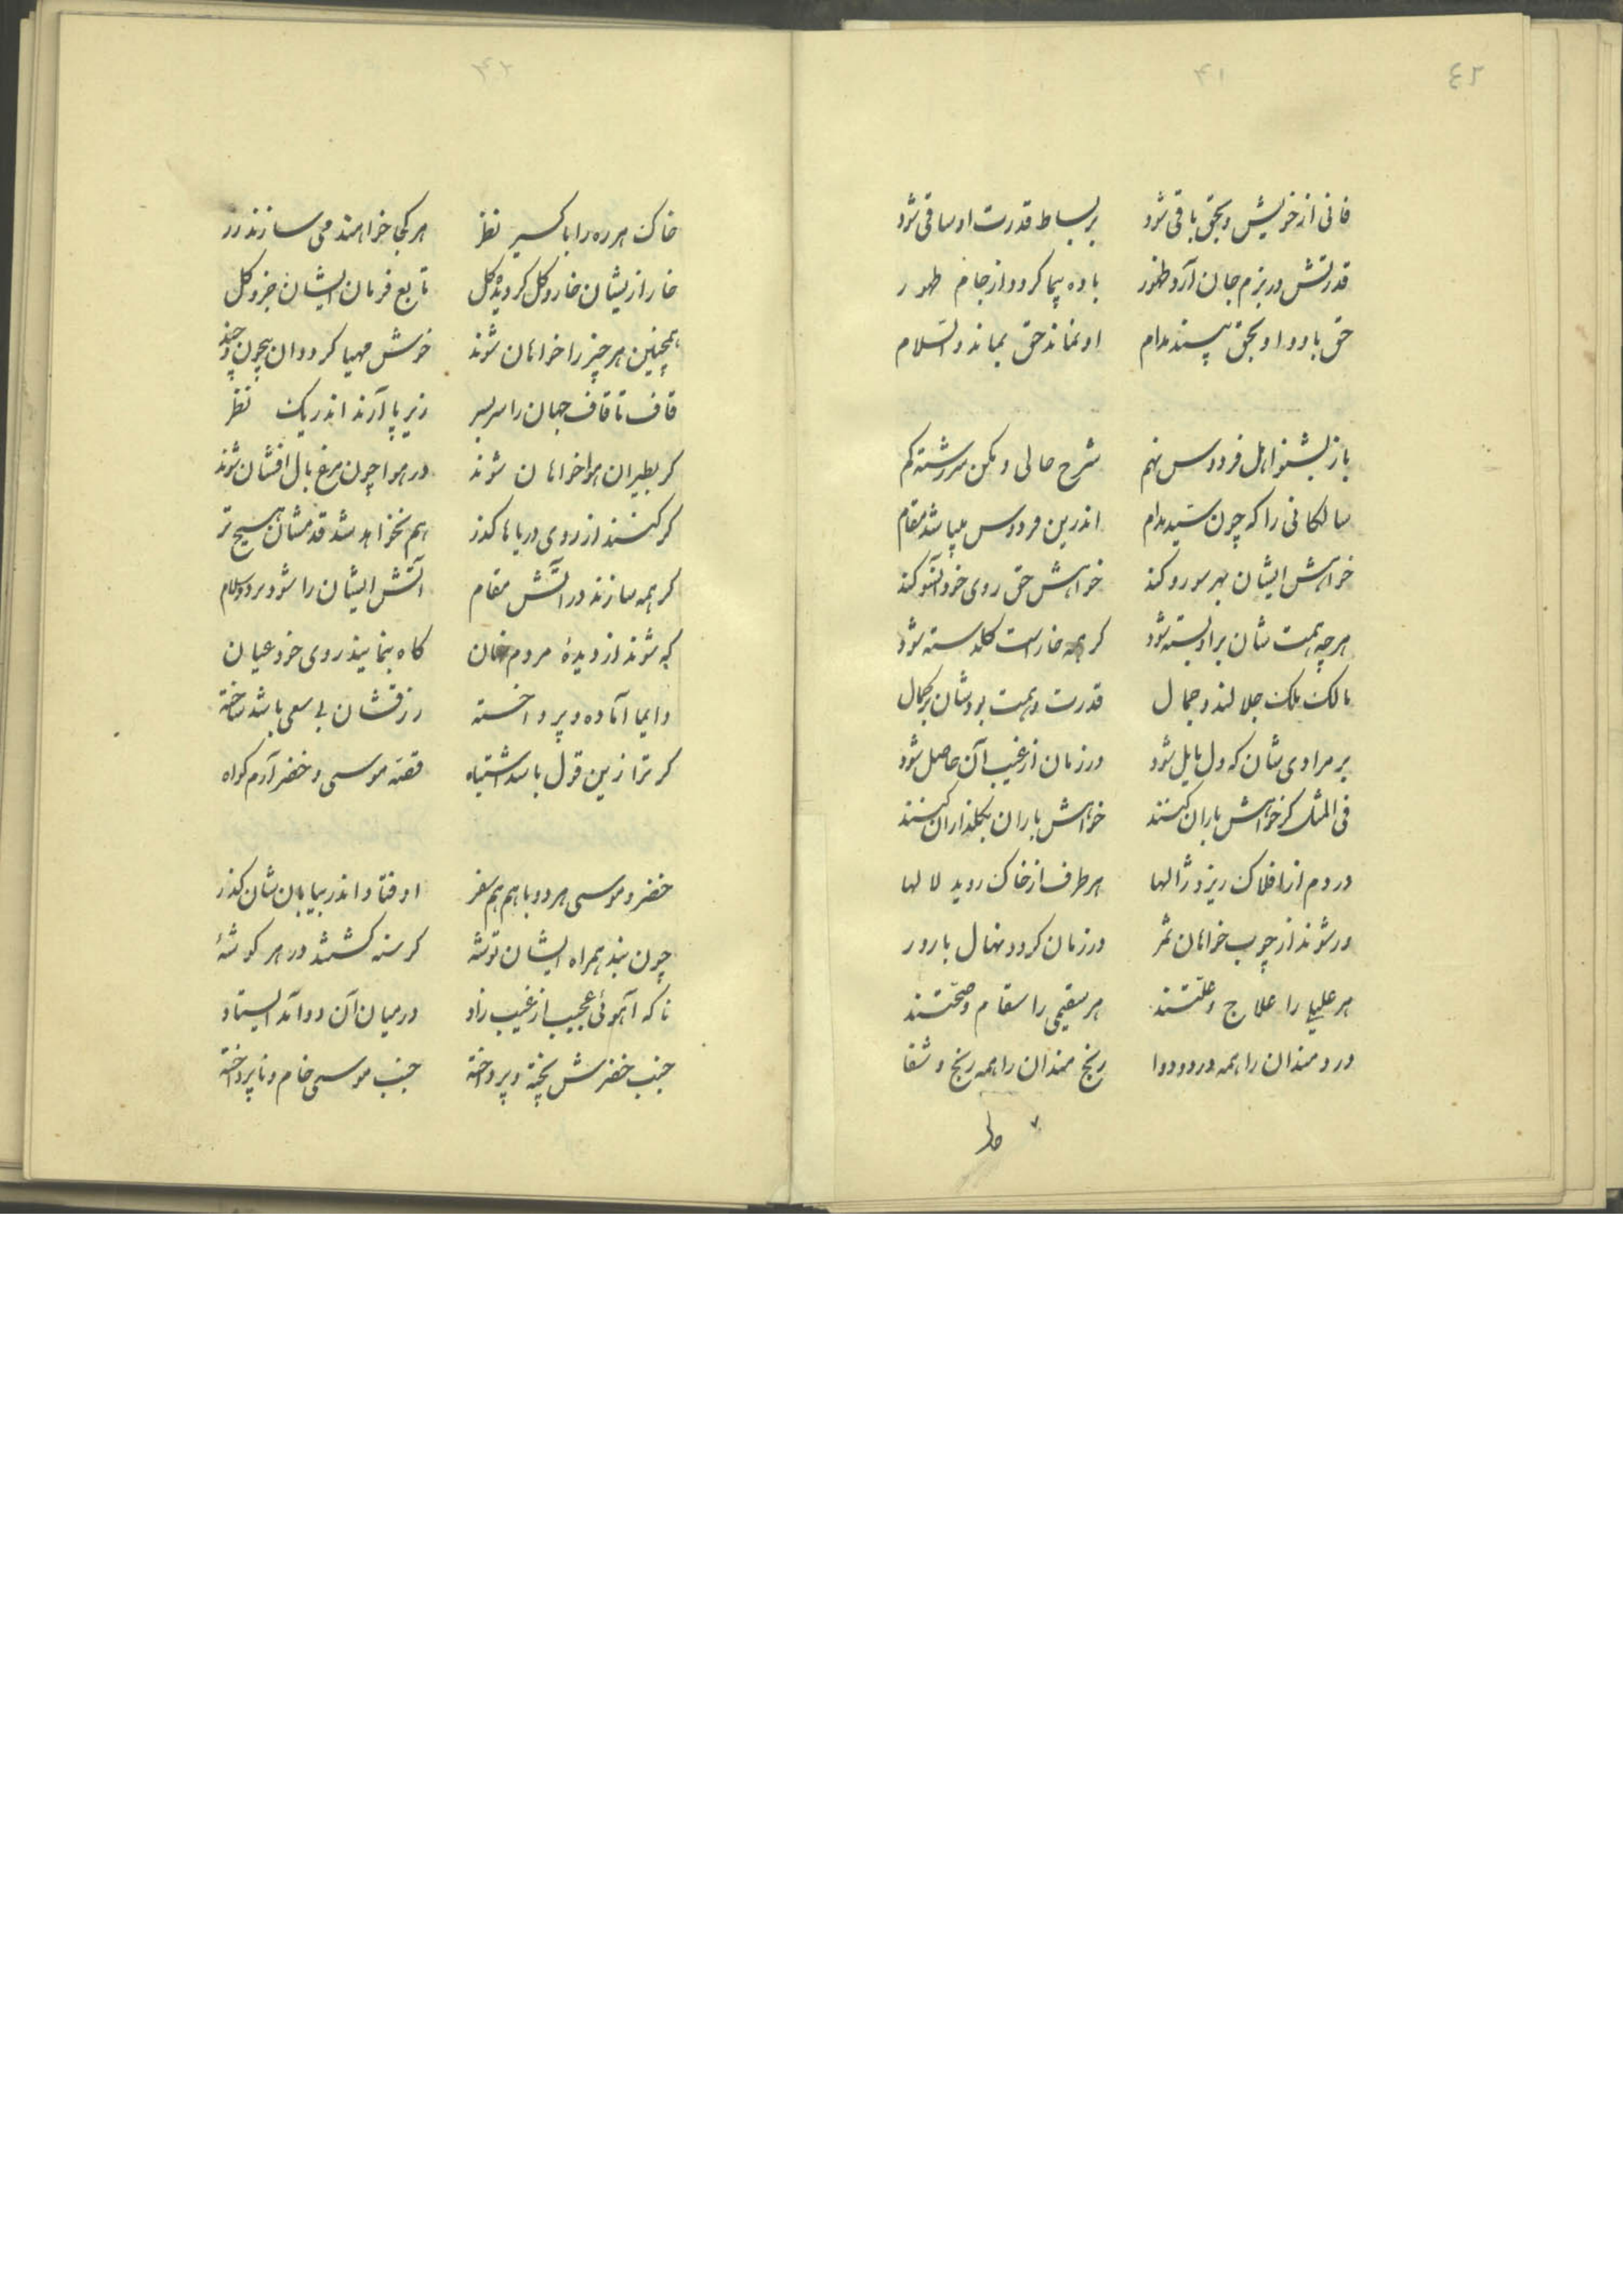 ٤٢
۴۱
فانی از خویش و بحق باقی شود بر بساط قدرت او ساقی شود
قدرتش در بزم جان آرد ظهور باده پیما کردد از جام طهور
حق باو و او بحق بیند مدام او نماند حق بماند والسلام
باز بشنو اهل فردوس نهم شرح حالی و مکن سررشته کم
سالکانی را که چون سید مدام اندرین فردوس میباشد مقام
خواهش ایشان بهر سو رو کند خواهش حق روی خود آنسو کند
هر چه همت شان برا و بسته شود کر همه خارست کلدسته شود
مالک ملک جلالند و جمال قدرت و همت بود شان بر کمال
بر مرادی شان که دل مایل شود در زمان از غیب آن حاصل شود
فی المثل کر خواهش باران کنند خواهش باران بکلذاران کنند
در دم از افلاک ریزد ژالها هر طرف از خاک روید لالها
ور شوند از چوب خواهان ثمر در زمان کردد نهال بارور
هر علیلی را علاج و علتند هر سقیمی را سقام و صحتند
دردمندان را همه درد و دوا رنج مندان را همه رنج و شفا
۴۲
خاک هر ره را باکسیر نظر هر کجا خواهند می سازند زر
خار از یشان خار و کل کردیده کل تابع فرمان ایشان جزو کل
همچنین هر چیز را خواهان شوند خوش مهیا کردد آن بیچون و چند
قاف تا قاف جهان را سر بسر زیر پا آرند اندر یک نظر
کر بطیران هوا خواهان شوند در هوا چون مرغ بال افشان شوند
کر کنند از روی دریاها کذر هم نخواهد شد قدمشان هیچ تر
کر همه سازند در آتش مقام آتش ایشان را شود برد و سلام
که شوند از دیدهٔ مردم نهان کاه بنمایند روی خود عیان
دایما آماده و پرداخسته رزقشان بی سعی باشد ساخته
کر ترا زین قول باشد اشتباه قصه موسی و خضر آرم کواه
خضر و موسی هر دو با هم هم سفر اوفتاد اندر بیابان شان کذر
چون نبد همراه ایشان توشه کرسنه کشتند در هر کوشهٔ
ناکه آهوئی عجیب از غیب زاد در میان آن دو آمد ایستاد
جنب خضرش پخته و پرداخته جنب موسی خام و ناپرداخته